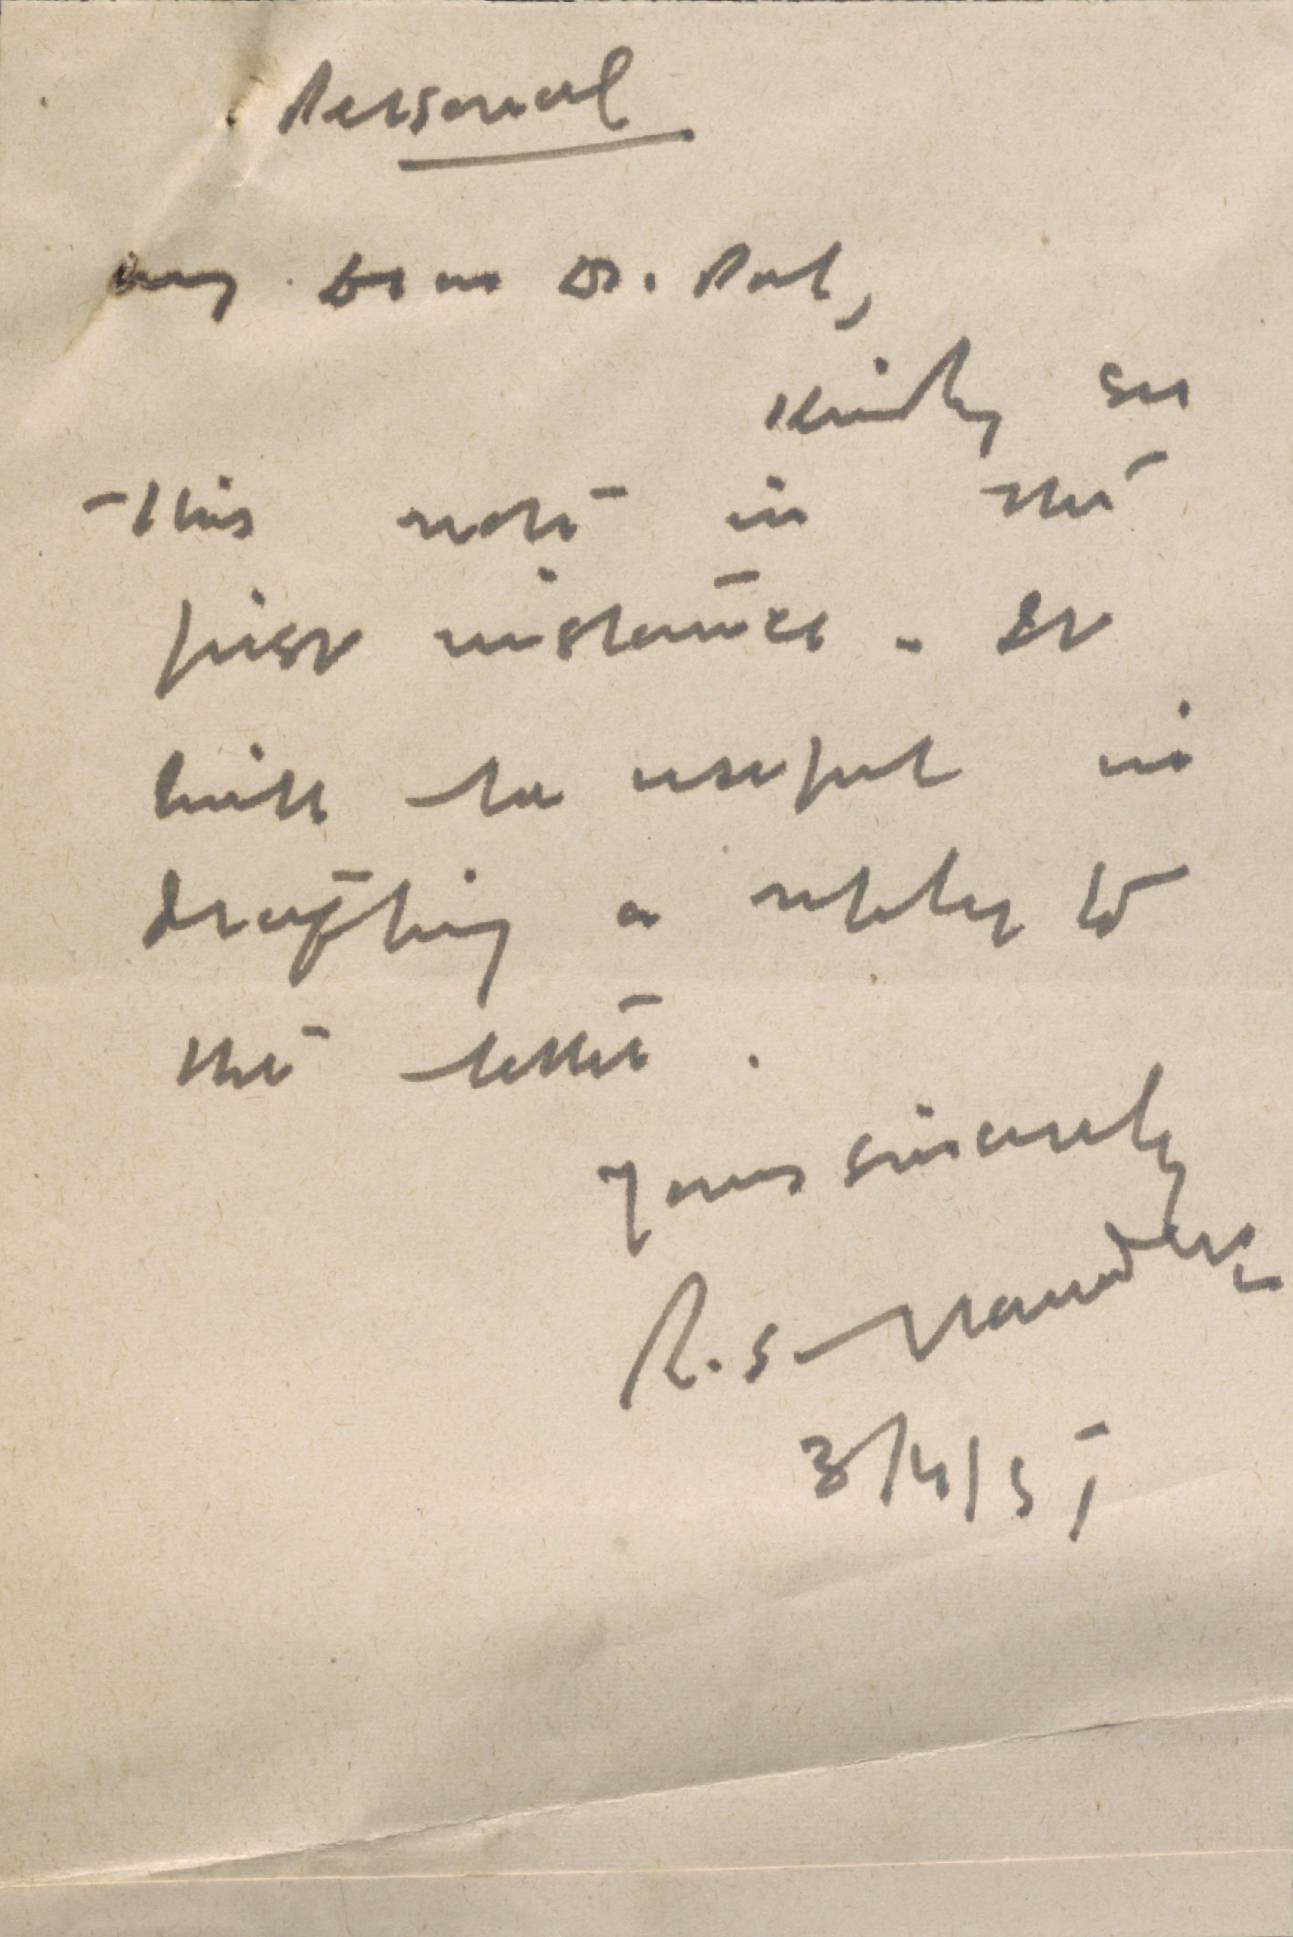 Personal
My Dear Dr. Pal,
Kindly see
this note in the
first instance. It
will be useful in
drafting a reply to
the letter.
Yours sincerely
R. S.
3/4/51